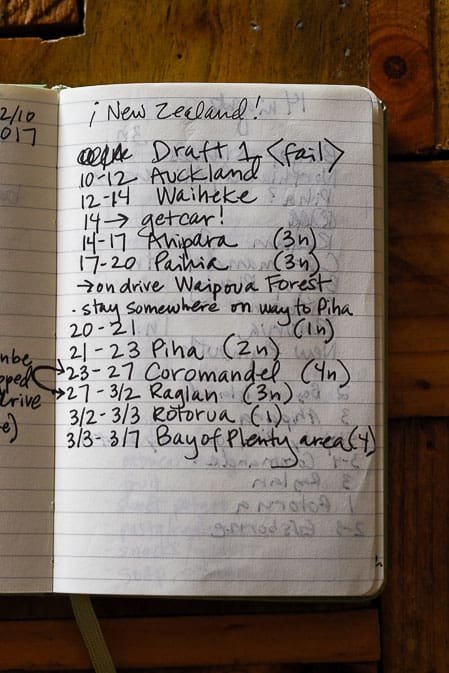 2/10
017
¡New Zealand!
Draft 1 <fail>
10-12 Auckland
12-14 Waiheke
14 → getcar!
14-17 Ahipara (3n)
17-20 Paihia (3n)
→ on drive Waipoua Forest
· stay somewhere on way to Piha
20-21 (1n)
21-23 Piha (2n)
23-27 Coromandel (4n)
27-3/2 Raglan (3n)
3/2-3/3 Rotorua (1)
3/3-3/7 Bay of Plenty area (4)
nbe
pped
drive
e)